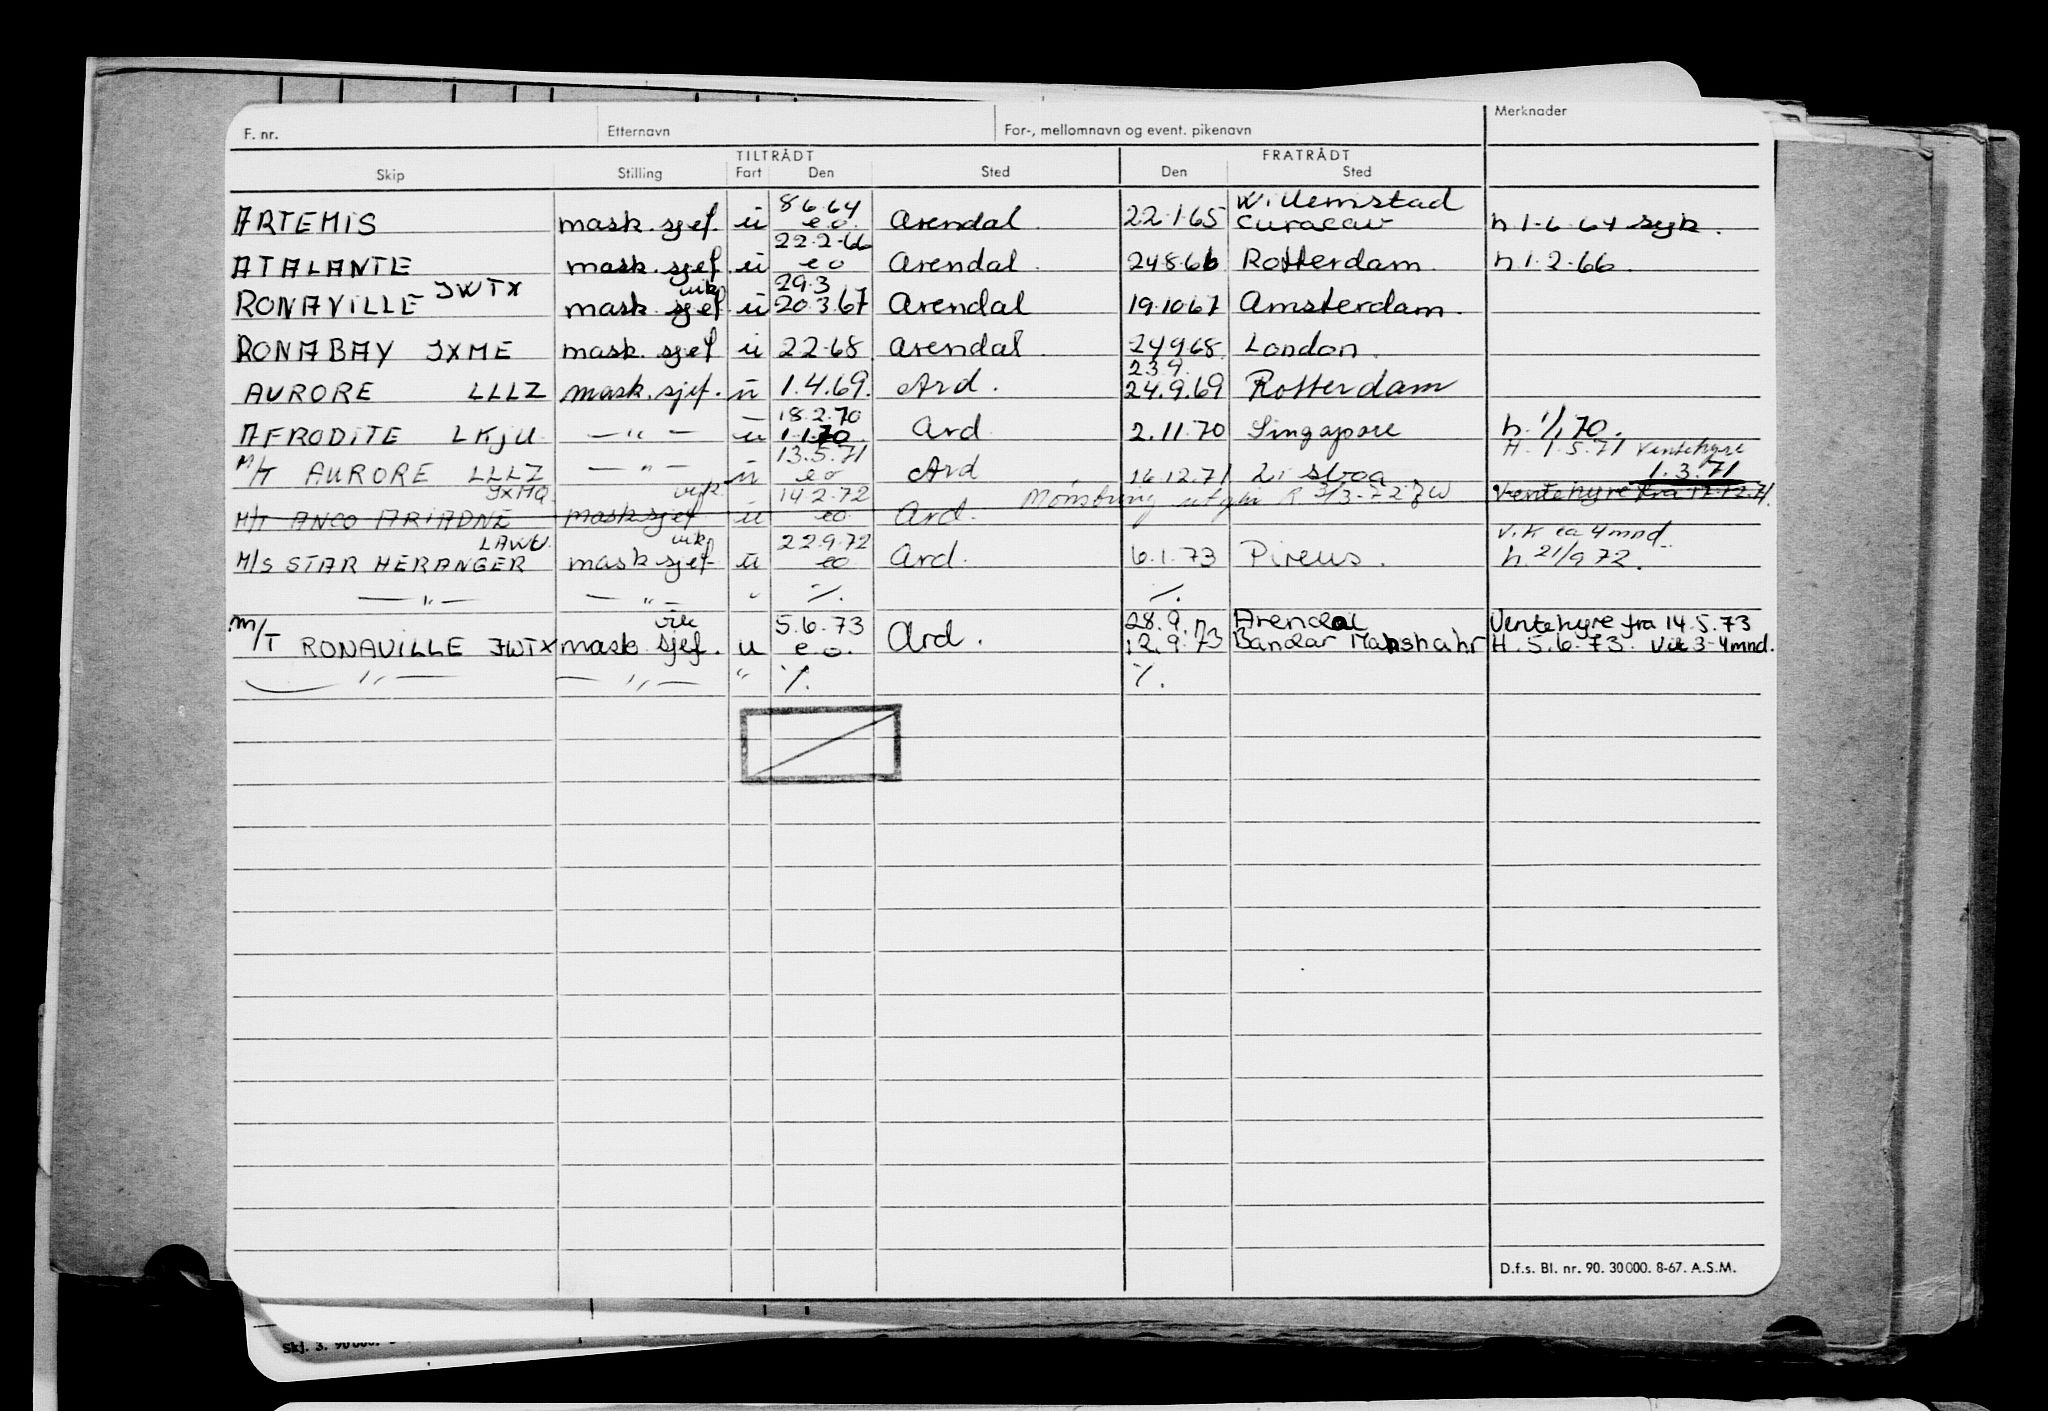 F. nr. Etternavn For-, mellomnavn og event. pikenavn Merknader
TILTRÅDT FRATRÅDT
Skip Stilling Fart Den Sted Den Sted
8 6.64 Willemstad
ARTEMIS mask. sjef. u e.o. Arendal 22.1.65 Curacau h 1.6.64 syk.
22.2.66
ATALANTE mask. sjef. u e o Arendal. 24.8.66 Rotterdam. h 1.2.66.
JWTX vik 29.3
RONAVILLE mask. sjef. u 20.3.67 Arendal 19.10.67 Amsterdam.
RONABAY JXME mask. sjef u 2.2.68 Arendal 24.9.68 London.
23.9.
AURORE LLLZ mask. sjef. u 1.4.69. Ard. 24.9.69 Rotterdam
18.2.70
AFRODITE LKJU — " — u 1.1.70. Ard 2.11.70 Singapore h. 1/1 70.
13.5.71 H. 1.5.71 Ventehyre
M/T AURORE LLLZ — " — u e o Ard 16.12.71 Lisboa 1.3.71
JXMQ. vik. 14.2.72 Mønstring utgår R 3/3-72 Ventehyre fra 17.12.71.
M/T ANCO ARIADNE mask sjef u eo Ard.
LAWU. vik. 22.9.72 V.k ca 4 mnd.
M/S STAR HERANGER mask sjef u eo. Ard. 6.1.73 Pireus. h. 21/9 72.
— " — — " — " ٪. ٪.
vik 5.6.73 28.9. Arendal Ventehyre fra 14.5.73
M/T RONAVILLE JWTX mask sjef. u e.o. Ard. 12.9.73 Bandar Mahshahr H. 5.6.73. Vik 3-4 mnd.
— " — — " — " ٪. ٪.
D.f.s. Bl. nr. 90. 30 000. 8-67. A.S.M.
Skj. 3. 90 000.